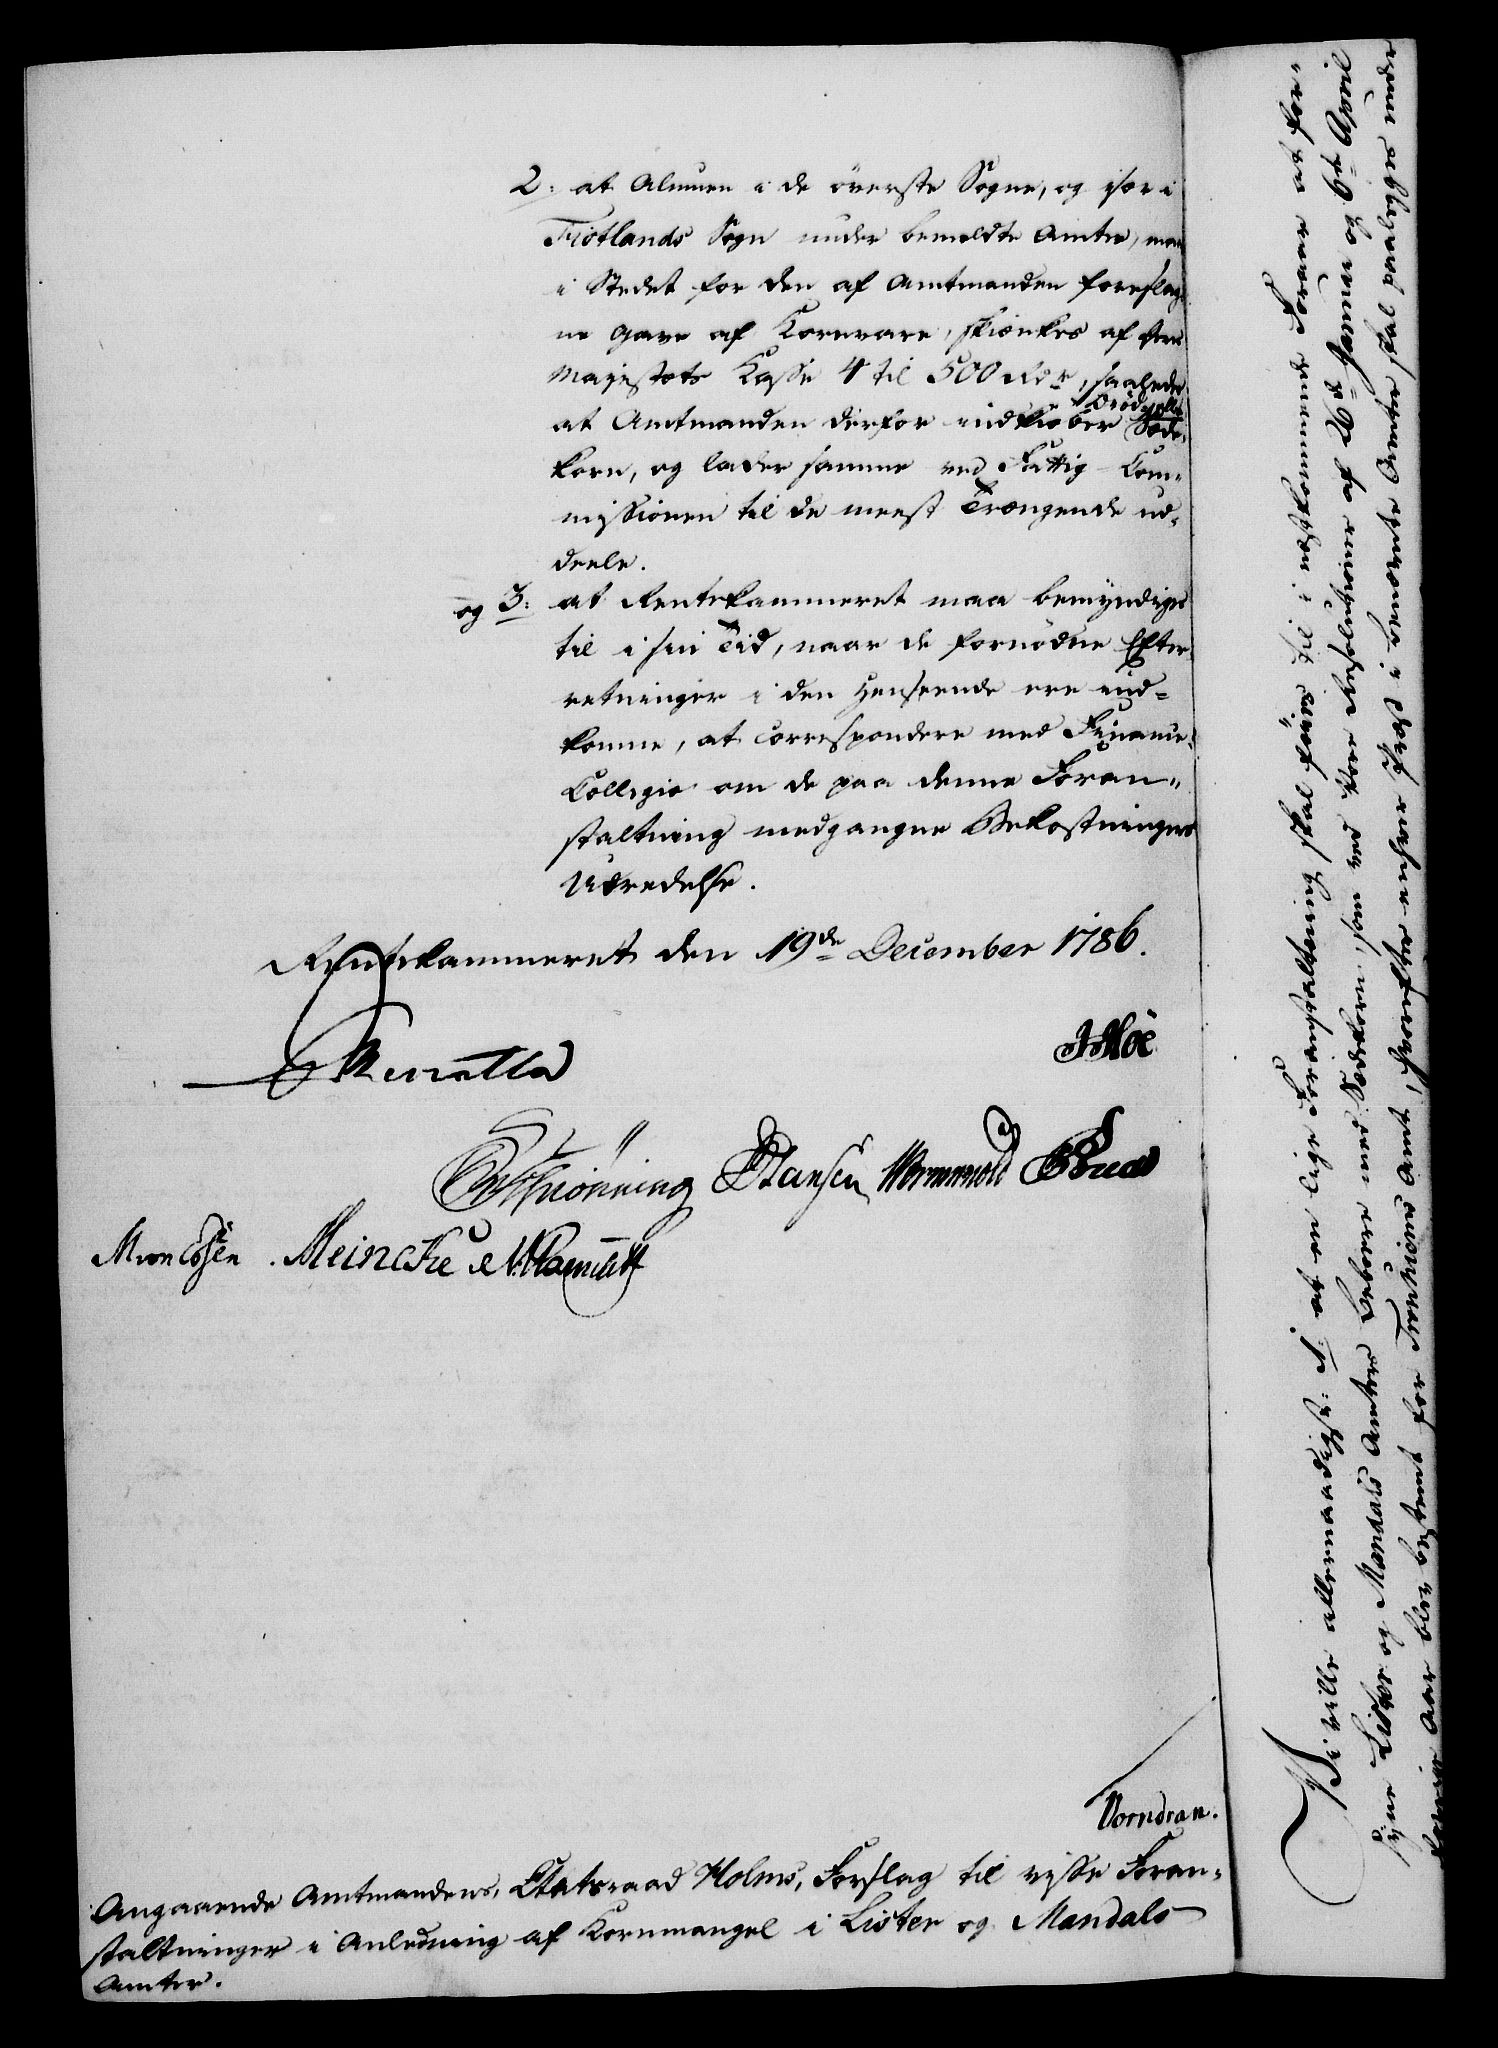 2. at Almuen i de överste Sogne, og især i
Fiotlands Sogn under bemeldte Amter, maa
i Stedet for den af Amtmanden foreslag-
ne Gave af Kornvare, skienkes af Deres
Majestæts Kasse 4 til 500 Rdr, saaledes
at Amtmanden derfor indkiöber Bröd eller Sæde-
korn, og lader samme ved Fattig-Com-
missionen til de meest Trængende ud-
deele.
og 3. at Rentekammeret maa bemyndiges
til i sin Tid, naar de fornödne Efter-
retninger i den Henseende ere ind-
komne, at correspondere med Finance-
Collegio om de paa denne Foran-
staltning medgangne Bekostningers
Udredelse.
Rentekammeret den 19de December 1786.
Hansen Wormskiold
Meincke
Vorndran.
Angaaende Amtmandens, Etatsraad Holms, Forslag til visse Foran-
staltninger i Anledning af Kornmangel i Lister og Mandals
Amter.
Vi ville allernaadigst: 1. at en lige Foranstaltning skal föies til i næstkommende Foraar at for-
syne Lister og Mandals Amters Beboere med Sædekorn, som ved Vore Resolutioner af 26de Januar og 6te April
forrige Aar blev bestemt for Tronhiems Amt, hvorefter enhver Præst i benævnte Amter skal paalegges under